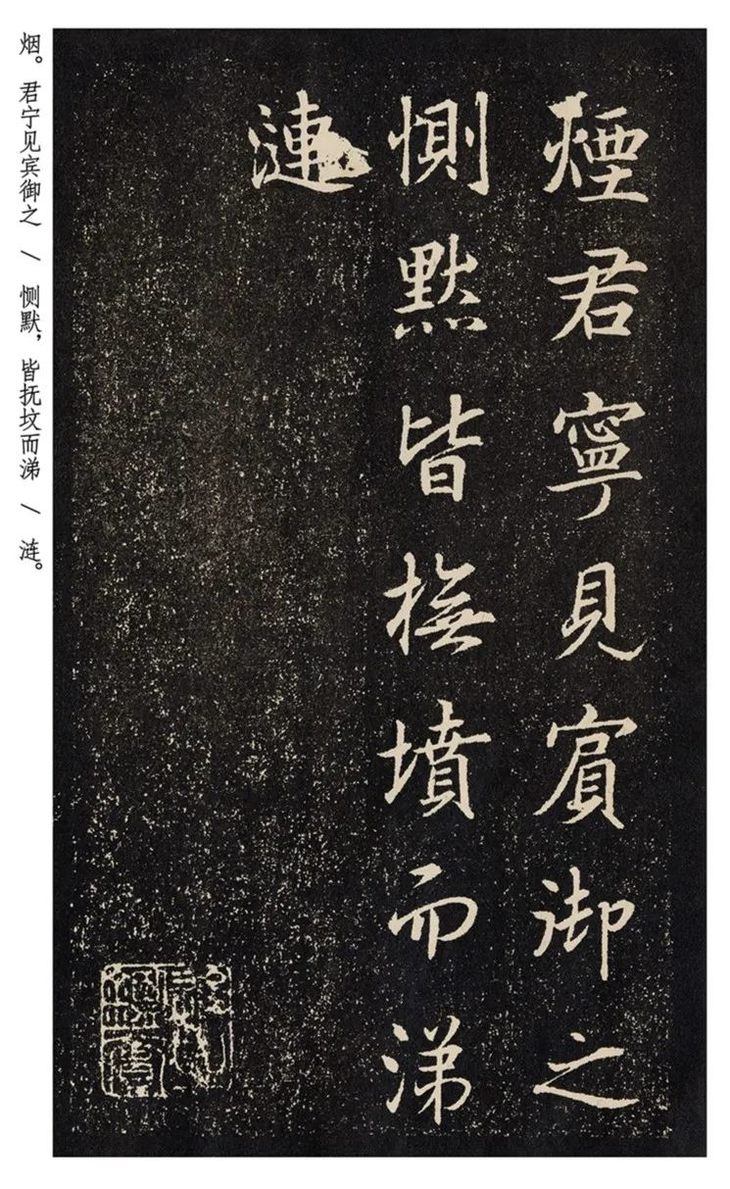 煙君寧見賔御之
惻黙皆撫墳而涕
漣
烟。君宁见宾御之 / 恻默，皆抚坟而涕 / 涟。